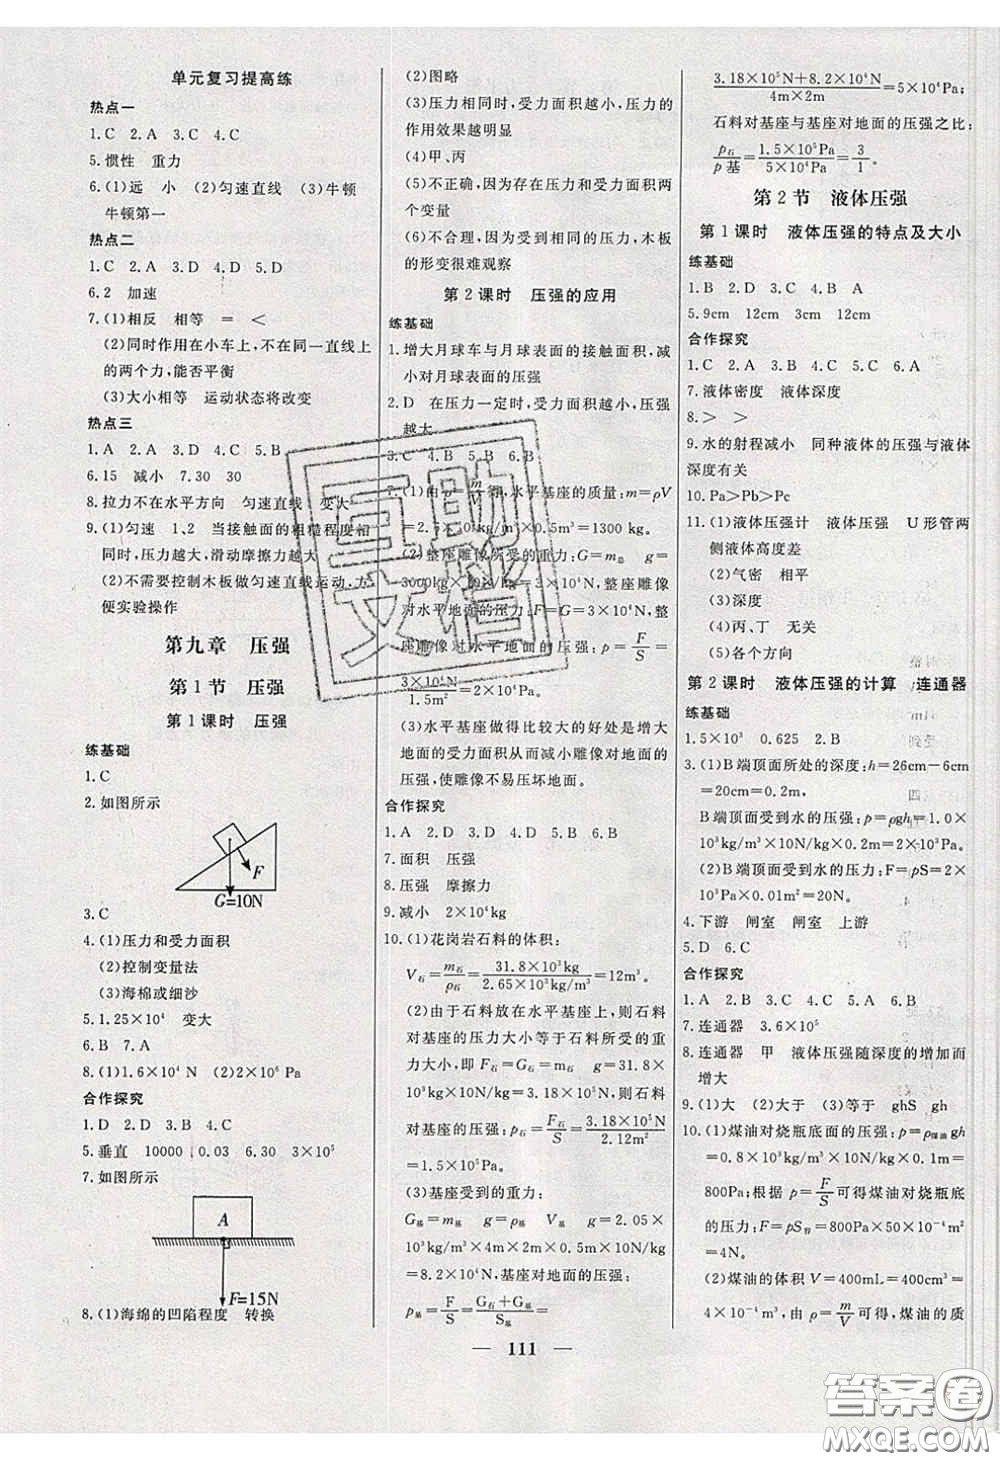 单元复习提高练
热点一
1.C 2.A 3.C 4.C
5.惯性 重力
6.(1)远 小 (2)匀速直线 (3)牛顿
牛顿第一
热点二
1.C 2.A 3.D 4.D 5.D
6.2 加速
7.(1)相反 相等 = <
(2)同时作用在小车上,不在同一直线上
的两个力,能否平衡
(3)大小相等 运动状态将改变
热点三
1.A 2.D 3.D 4.A 5.B
6.15 减小 7.30 30
8.拉力不在水平方向 匀速直线 变大
9.(1)匀速 1、2 当接触面的粗糙程度相
同时,压力越大,滑动摩擦力越大
(2)不需要控制木板做匀速直线运动,方
便实验操作
第九章 压强
第1节 压强
第1课时 压强
练基础
1.C
2.如图所示
F
G=10N
3.C
4.(1)压力和受力面积
(2)控制变量法
(3)海棉或细沙
5.1.25×10⁴ 变大
6.B 7.A
8.(1)1.6×10⁴ N (2)2×10⁶ Pa
合作探究
1.D 2.D 3.B 4.C
5.垂直 10000 0.03 6.30 3×10⁵
7.如图所示
A
F=15N
8.(1)海绵的凹陷程度 转换
(2)图略
(3)压力相同时,受力面积越小,压力的
作用效果越明显
(4)甲、丙
(5)不正确,因为存在压力和受力面积两
个变量
(6)不合理,因为受到相同的压力,木板
的形变很难观察
第2课时 压强的应用
练基础
1.增大月球车与月球表面的接触面积,减
小对月球表面的压强
2.D 在压力一定时,受力面积越小,压强
越大
3.C 4.B 5.B 6.B
7.(1)由ρ=m/V得,水平基座的质量:m=ρV
=2.6×10³kg/m³×0.5m³=1300 kg。
(2)整座雕像所受的重力:G=m总 g=
3000kg×10N/kg=3×10⁴N,整座雕像
对水平地面的压力:F=G=3×10⁴N,整
座雕像对水平地面的压强:p=F/S=
3×10⁴N/1.5m²=2×10⁴Pa。
(3)水平基座做得比较大的好处是增大
地面的受力面积从而减小雕像对地面的
压强,使雕像不易压坏地面。
合作探究
1.A 2.D 3.D 4.D 5.B 6.B
7.面积 压强
8.压强 摩擦力
9.减小 2×10⁴kg
10.(1)花岗岩石料的体积:
V石=m石/ρ石=31.8×10³kg/2.65×10³kg/m³=12m³。
(2)由于石料放在水平基座上,则石料
对基座的压力大小等于石料所受的重
力大小,即 F石=G石=m石 g=31.8×
10³kg×10N/kg=3.18×10⁵N,则石料
对基座的压强:p石=F石/S=3.18×10⁵N/2.12m²
=1.5×10⁵Pa。
(3)基座受到的重力:
G基=m基 g=ρ基 V基 g=2.05×
10³kg/m³×4m×2m×0.5m×10N/kg
=8.2×10⁴N;基座对地面的压强:
p基=F/S=G石+G基/S基=
3.18×10⁵N+8.2×10⁴N/4m×2m=5×10⁴Pa;
石料对基座与基座对地面的压强之比:
p石/p基=1.5×10⁵Pa/5×10⁴Pa=3/1。
第2节 液体压强
第1课时 液体压强的特点及大小
练基础
1.B 2.D 3.C 4.B A
5.9cm 12cm 3cm 12cm
合作探究
1.C 2.A 3.A 4.B 5.C 6.A
7.液体密度 液体深度
8.> >
9.水的射程减小 同种液体的压强与液体
深度有关
10.Pa>Pb>Pc
11.(1)液体压强计 液体压强 U形管两
侧液体高度差
(2)气密 相平
(3)深度
(4)丙、丁 无关
(5)各个方向
第2课时 液体压强的计算 连通器
练基础
1.5×10³ 0.625 2.B
3.(1)B端顶面所处的深度:h=26cm-6cm
=20cm=0.2m,
B端顶面受到水的压强:p=ρgh=1.0×
10³kg/m³×10N/kg×0.2m=2×10³Pa。
(2)B端顶面受到水的压力:F=pS=2×
10³Pa×0.01m²=20N。
4.下游 闸室 闸室 上游
5.D 6.C
合作探究
1.A 2.B 3.C 4.C 5.A 6.B
7.连通器 3.6×10⁵
8.连通器 甲 液体压强随深度的增加而
增大
9.(1)大 (2)大于 (3)等于 ghS gh
10.(1)煤油对烧瓶底面的压强:p=ρ煤油gh
=0.8×10³kg/m³×10N/kg×0.1m=
800Pa;根据 p=F/S可得煤油对烧瓶底
的压力:F=pS=800Pa×50×10⁻⁴m²
=4N。
(2)煤油的体积 V=400mL=400cm³=
4×10⁻⁴m³,由ρ=m/V可得,煤油的质
111
互助文档
答案圈
MXQE.COM